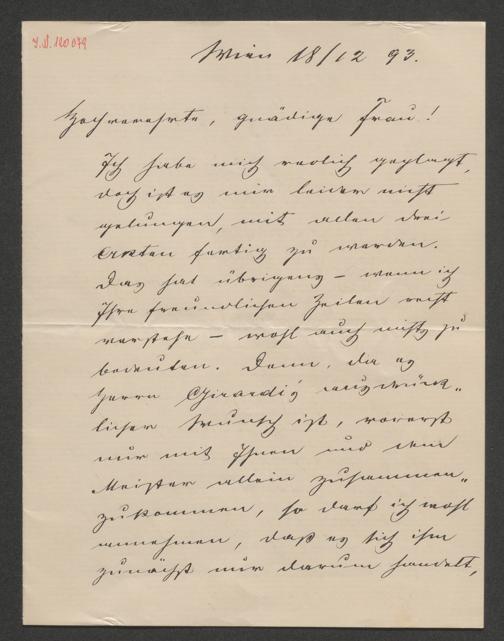 I.N. 120079
Wien 18/12 93.
Hochverehrte, gnädige Frau!
Ich habe mich redlich geplagt,
doch ist es mir leider nicht
gelungen, mit allen drei
Akten fertig zu werden.
Das hat übrigens – wenn ich
Ihre freundlichen Zeilen recht
verstehe – wohl auch nichts zu
bedeuten. Denn, da es
Herrn Girardi's ausdrück„
licher Wunsch ist, vorerst
nur mit Ihnen und dem
Meister allein zusammen„
zukommen, so darf ich wohl
annehmen, daß es sich ihm
zunächst nur darum handelt,